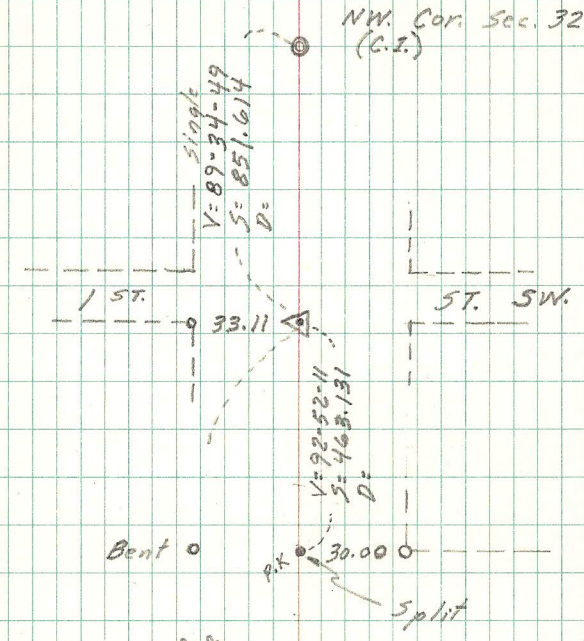 NW. Cor. Sec. 32
(C.I.)
Single
V= 89-34-49
S= 851.614
D=
1 ST.
33.11
ST. SW.
V= 92-52-11
S= 463.131
D=
Bent
P.K
30.00
Split